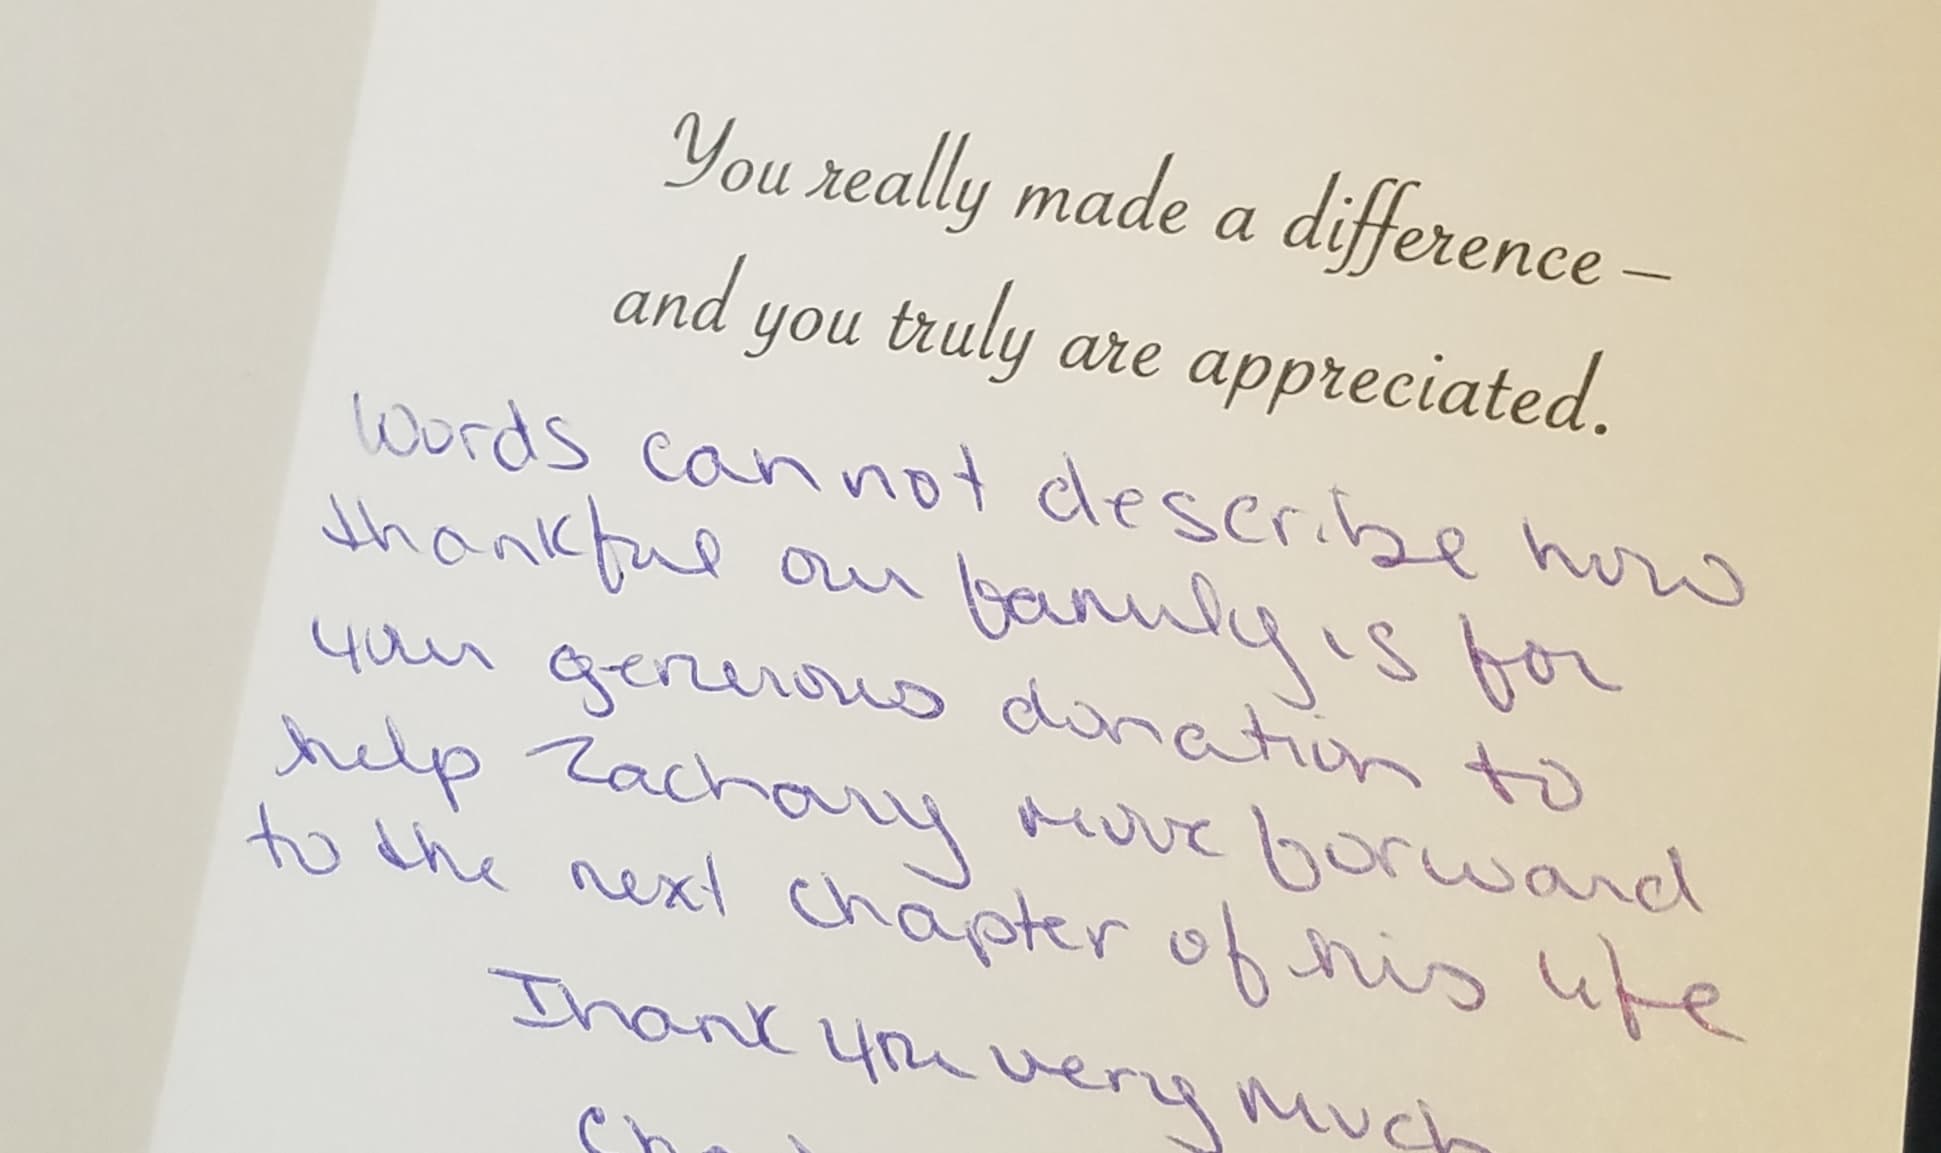 You really made a difference –
and you truly are appreciated.
Words cannot describe how
thankful our family is for
your generous donation to
help Zachary move forward
to the next chapter of his life
Thank you very much